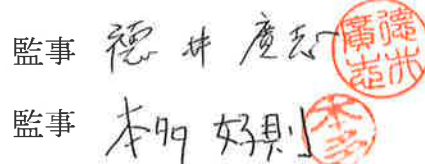 監事 德井廣志 德井廣志
監事 本多好則 本多